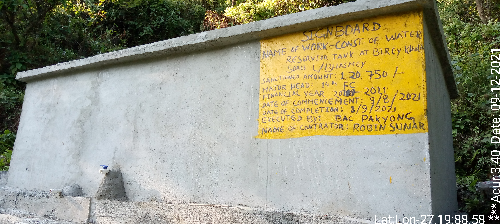 SIGN BOARD
NAME OF WORK- CONST OF WATER
RESERVIOR TANK AT BIRCY
SANCTIONED AMOUNT: 1,20,750/-
MAJOR HEAD
FINANCIAL YEAR
DATE OF COMMENCEMENT: 9/8/2021
DATE OF COMPLETION: 8/9/2021
EXECUTED BY: BAC PAKYONG
NAME OF CONTRATOR: ROBIN SUNAR
Lat Lon-27.19:88.58
Date:09-12-2021